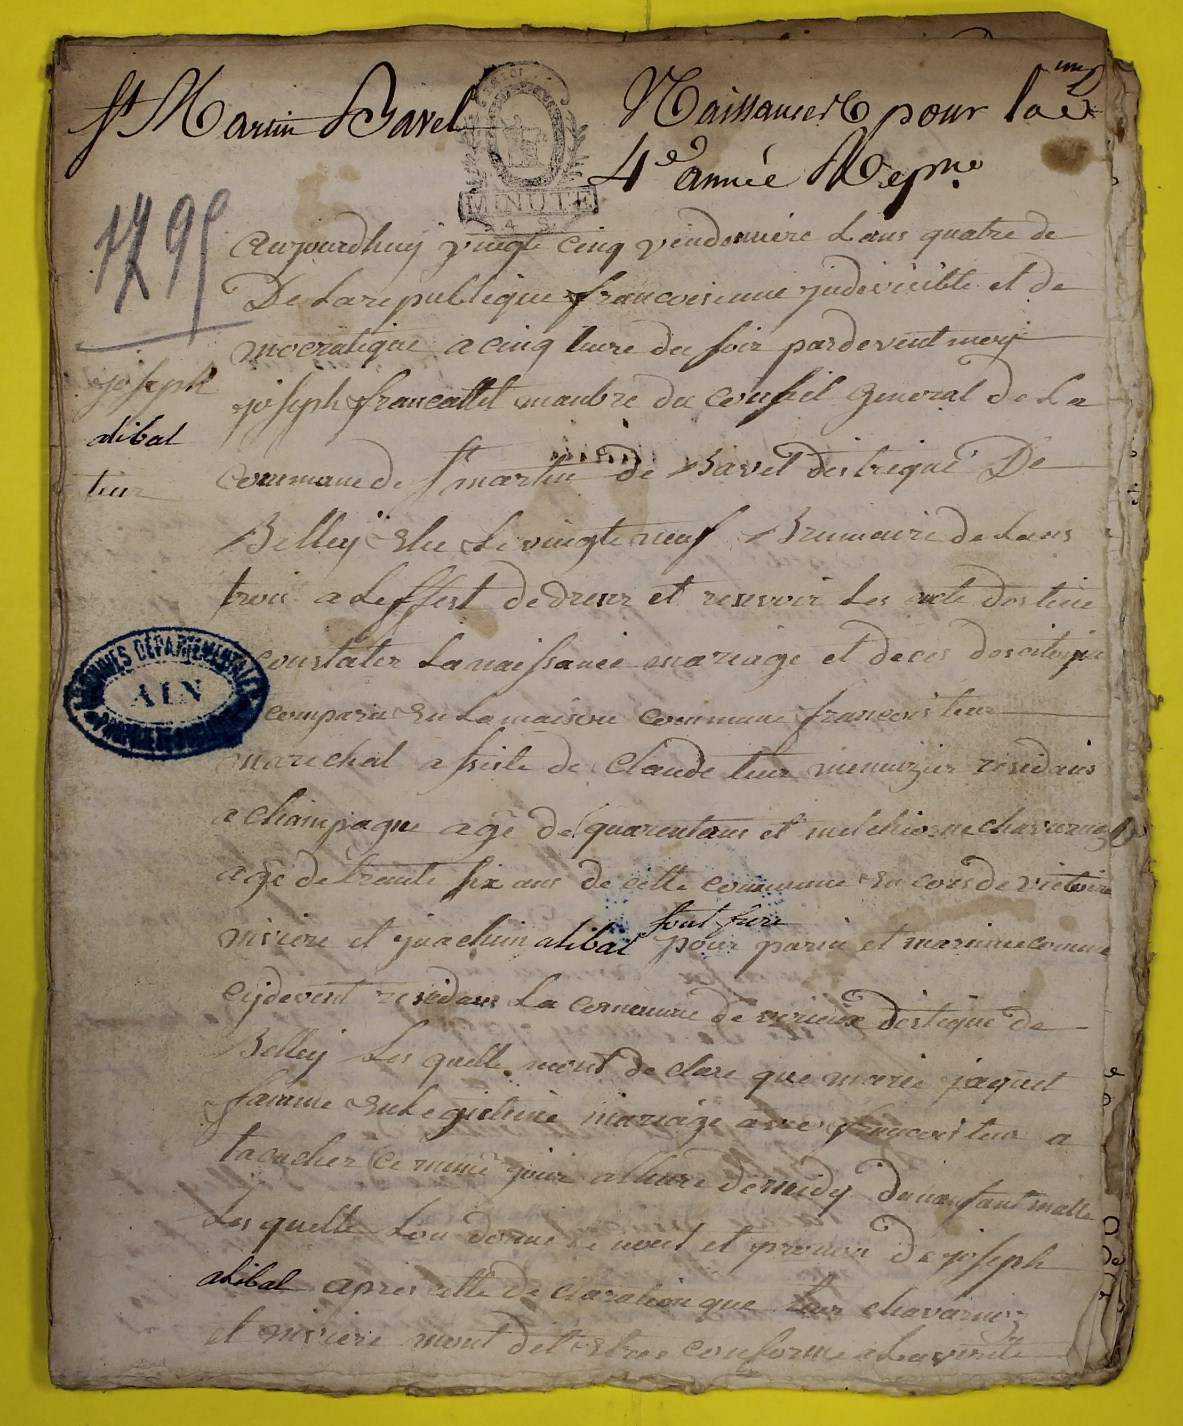 St Martin Bavel
Naissances &c pour la
4e année Repne
MINUTE
1795
aujourdhuj vingt cinq vendemiere Lans quatre de
De La republique francoisienne jndivicible et de
mocratique a cinq heure du soir pardevent moy
joseph
joseph francallet manbre du conseil general de La
alibal
commune de st martin de Bavel destrique De
teur
Belley Elu Le vingte neuf Brumaire de Lans
trois a Leffest de dreser et resevoir Les acte destine
constater La naissance mariage et deces des citoyin
ARCHIVES DÉPARTEMENTALES
AIN
comparu En La maison commune francois teur
marechal assiste de Claude teur menuizier residans
a Champagne agé de quarentans et melchior ne chavarnoz
agé de trente six ans de cette commune En cors de victoire
miviere et joachim alibal sout furi pour parin et marinne comme
cydevent residans La commune de virieux destique de
Belley Les quelle mont de clare que marie jaquet
famme En Legietime mariage avec francois teur a
tacucher ce meme jour a lheure de midy dun anfant malle
Les quelle Lon donné le nont et prenon de joseph
alibal apres cette de claration que teur chavarnoz
et miviere mont dit Etres conforme a La verite